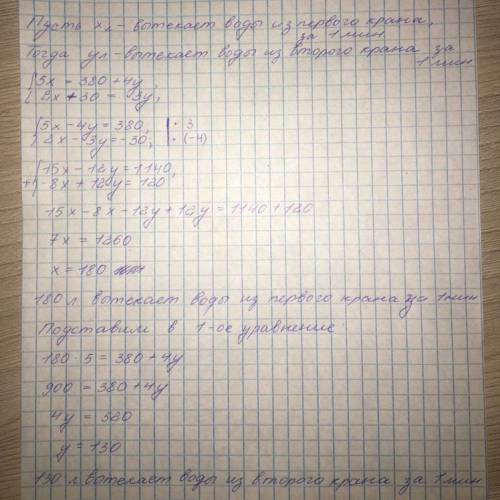 Пусть x л - вытекает воды из первого крана,
за 1 мин
Тогда y л - вытекает воды из второго крана за
1 мин
5x = 380 + 4y,
2x + 30 = 3y;
5x - 4y = 380, | · 3
2x - 3y = -30; | · (-4)
15x - 12y = 1140,
+ -8x + 12y = 120
15x - 8x - 12y + 12y = 1140 + 120
7x = 1260
x = 180
180 л вытекает воды из первого крана за 1 мин
Подставим в 1-ое уравнение:
180 · 5 = 380 + 4y
900 = 380 + 4y
4y = 520
y = 130
130 л вытекает воды из второго крана за 1 мин